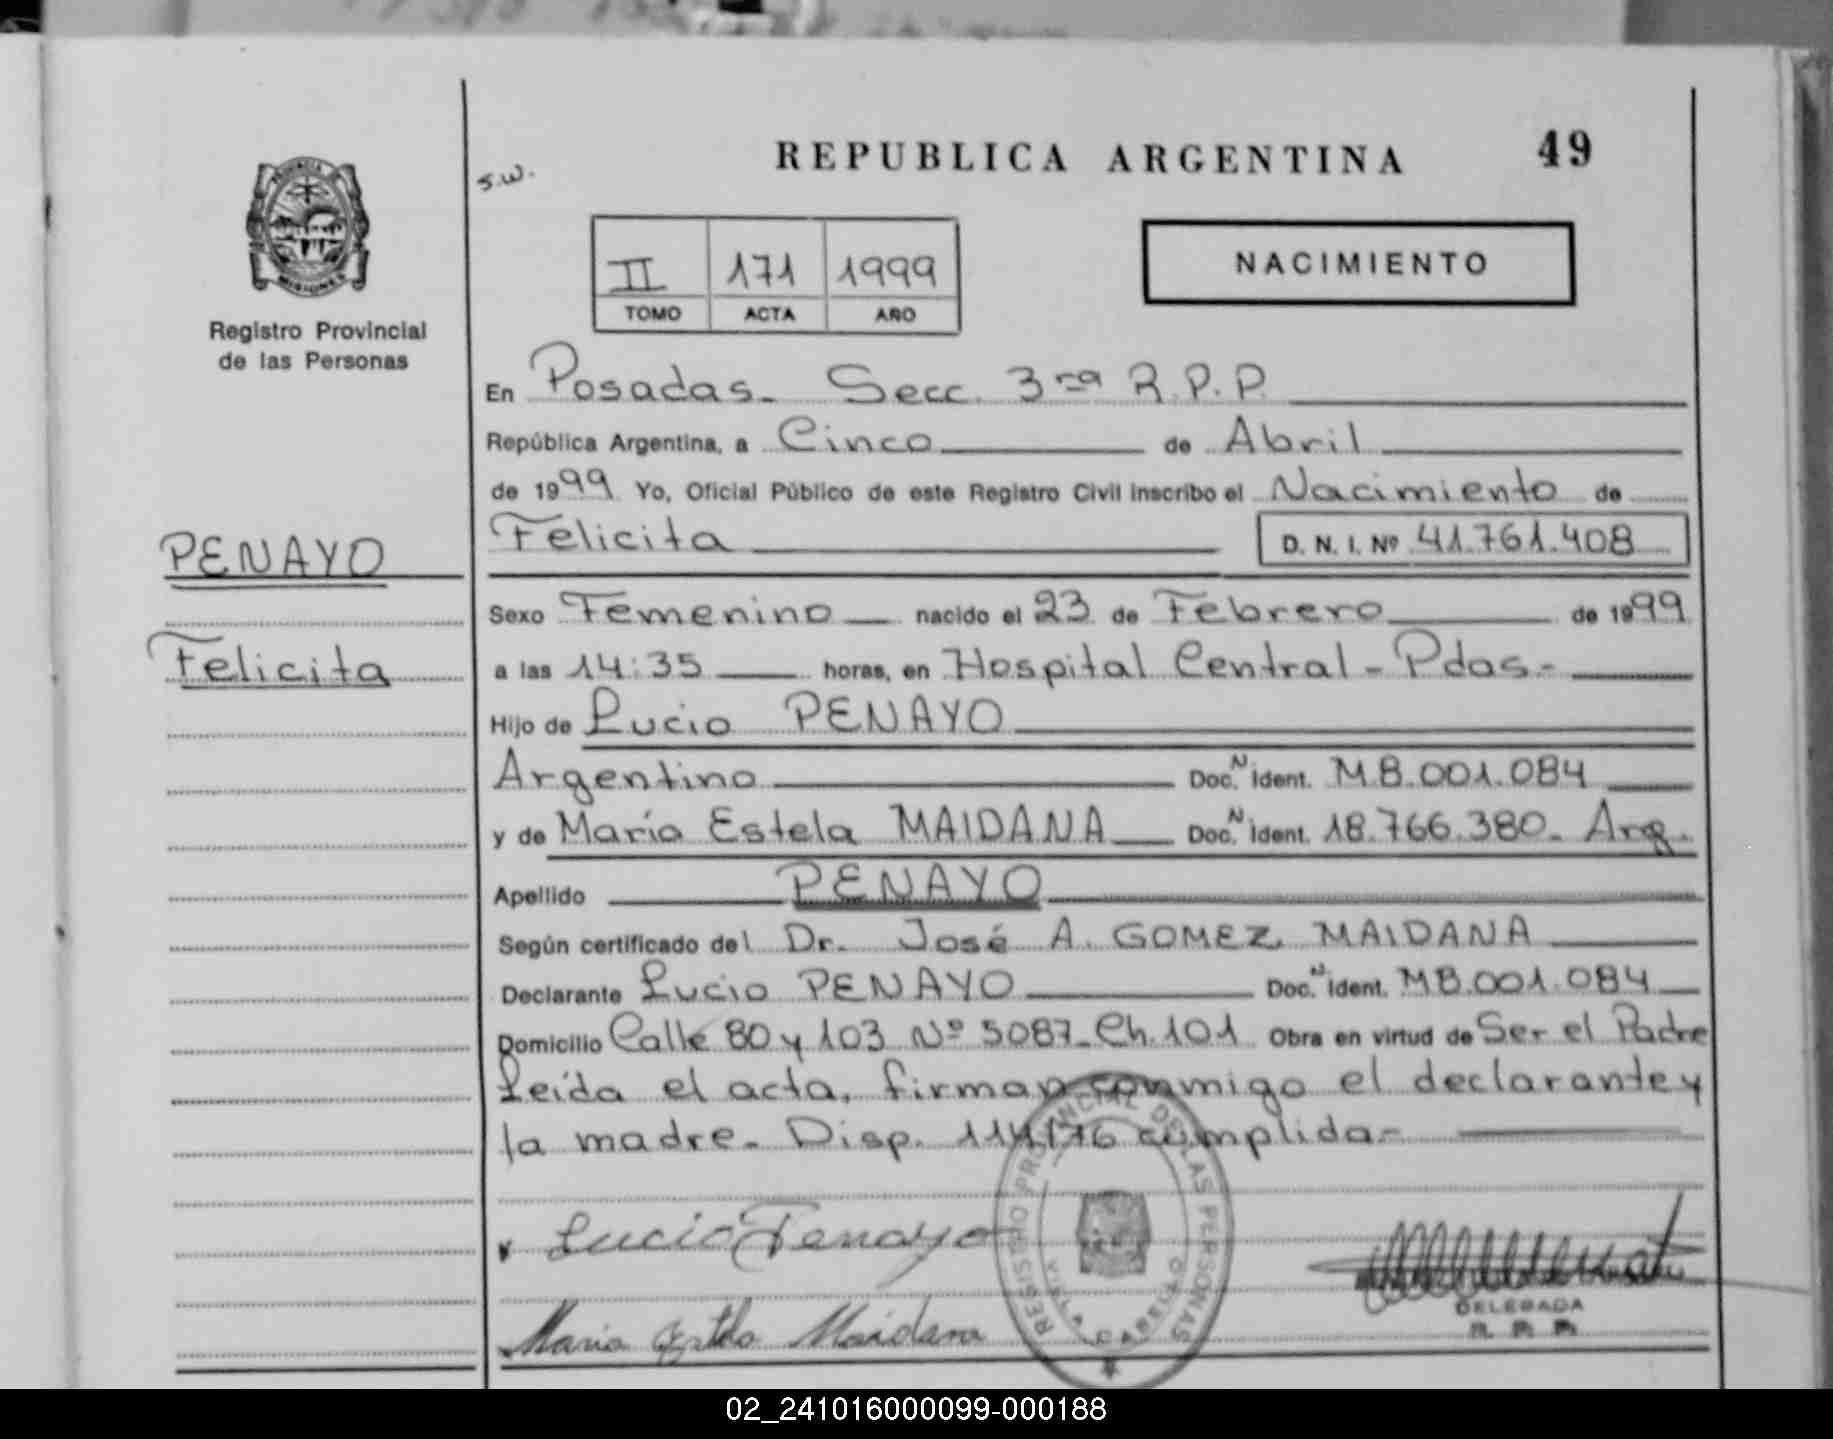 REPUBLICA ARGENTINA 49
S.W.
PROVINCIA
MISIONES
Registro Provincial
de las Personas
II 171 1999
TOMO ACTA AÑO
NACIMIENTO
En Posadas. Secc. 3ra R.P.P.
República Argentina, a Cinco de Abril
de 1999 Yo, Oficial Público de este Registro Civil inscribo el Nacimiento de
PENAYO
Felicita D. N. I. Nº 41.761.408
Sexo Femenino nacido el 23 de Febrero de 1999
Felicita
a las 14:35 horas, en Hospital Central - Pdas.-
Hijo de Lucio PENAYO
Argentino Doc. N Ident. M8.001.084
y de María Estela MAIDANA Doc. N Ident. 18.766.380. Arg.
Apellido PENAYO
Según certificado del Dr. José A. GOMEZ MAIDANA
Declarante Lucio PENAYO Doc. N Ident. M8.001.084
Domicilio Calle 80 y 103 Nº 5087- Ch. 101 Obra en virtud de Ser el Padre
Leída el acta, firman conmigo el declarante y
la madre. Disp. 114/76 cumplida.-
Lucio Penayo
REGISTRO PROVINCIAL DE LAS PERSONAS
VILLA CABELLO
DELEGADA
R. P. P.
Maria Estela Maidana
02_241016000099-000188